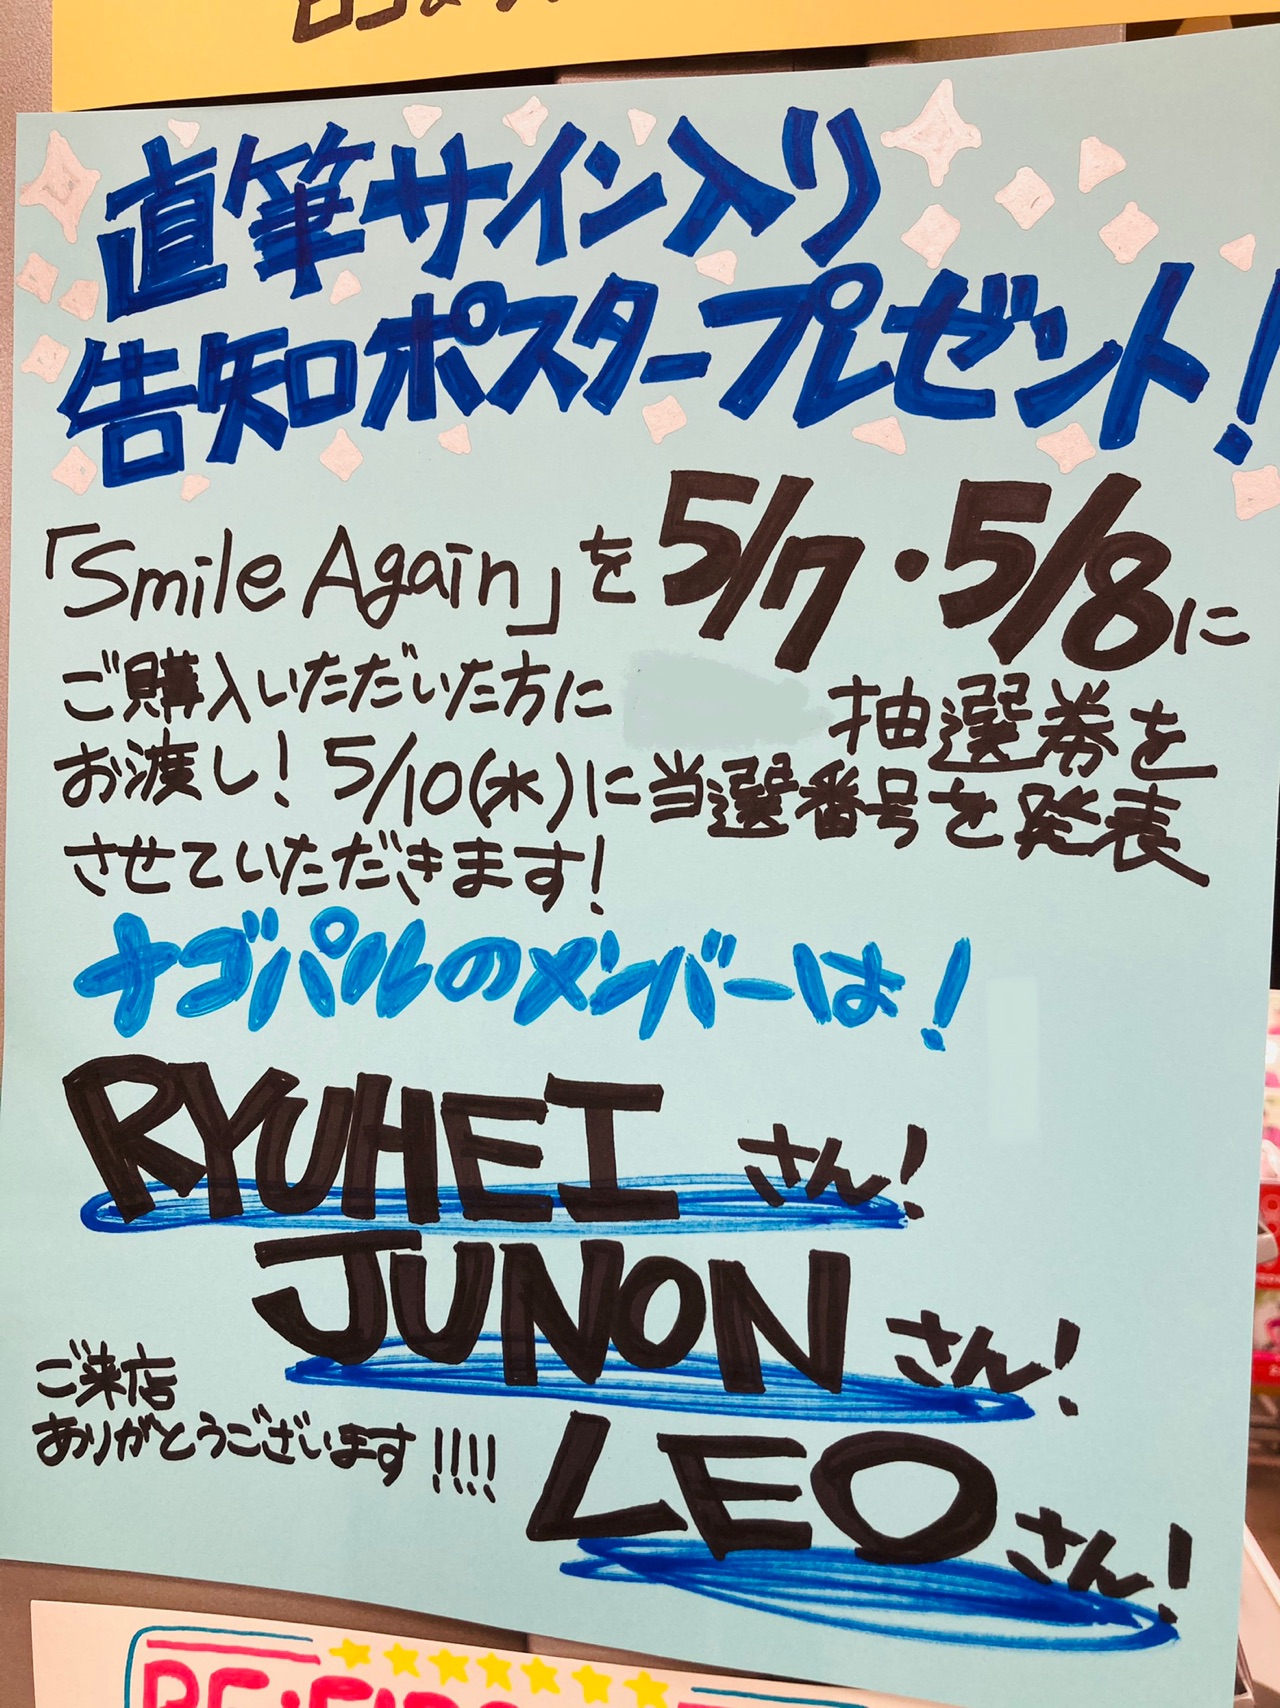 直筆サイン入り
告知ポスタープレゼント!
「Smile Again」を5/7・5/8に
ご購入いただいた方に 抽選券を
お渡し! 5/10(水)に当選番号を発表
させていただきます!
ナゴパルのメンバーは!
RYUHEIさん!
JUNONさん!
ご来店
ありがとうございます!!!!
LEOさん!